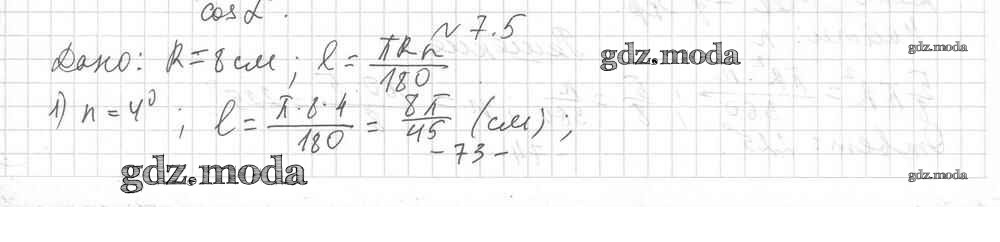 cos α .
№ 7.5
Дано: R = 8 см ; l = πRn/180
1) n = 4⁰ ; l = π·8·4/180 = 8π/45 (см) ;
- 73 -
gdz.moda
gdz.moda
gdz.moda
gdz.moda